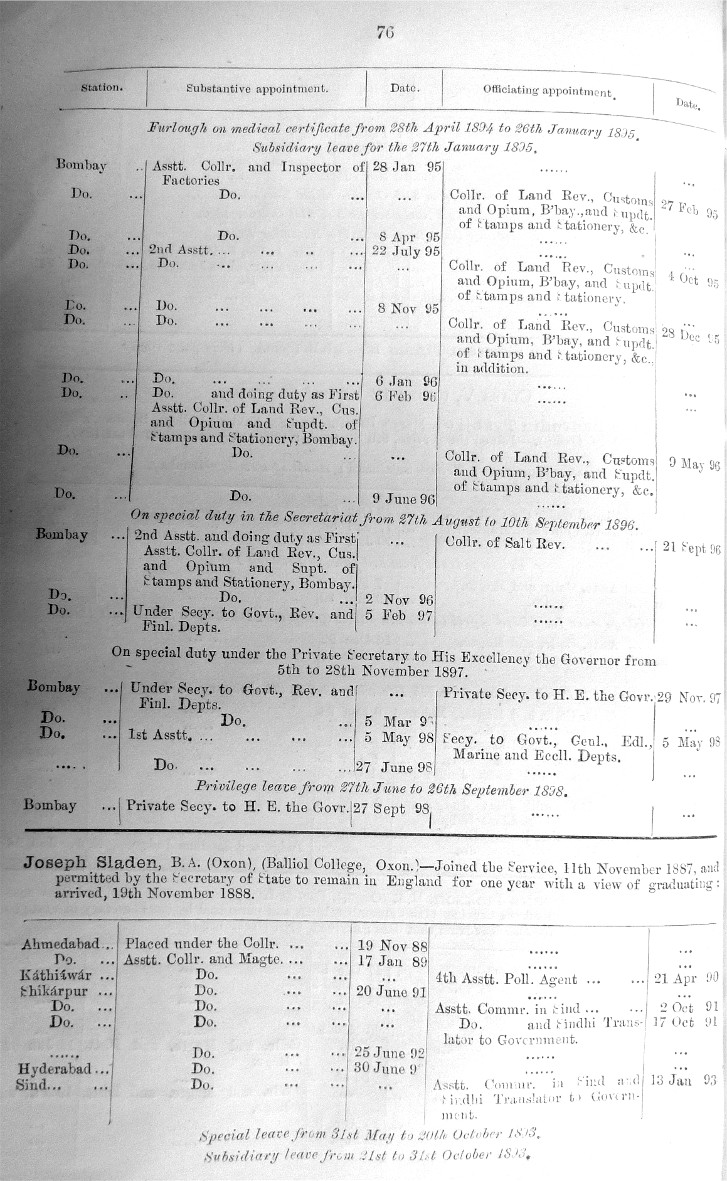 76
Station. Substantive appointment. Date. Officiating appointment. Date.
Furlough on medical certificate from 28th April 1894 to 26th January 1895.
Subsidiary leave for the 27th January 1895.
Bombay .. Asstt. Collr. and Inspector of 28 Jan 95 ...... ...
Factories
Do. ... Do. ... ... Collr. of Land Rev., Customs 27 Feb 95
and Opium, B'bay., and Supdt.
of Stamps and Stationery, &c.
Do. ... Do. ... 8 Apr 95 ......
Do. ... 2nd Asstt. ... ... .. ... 22 July 95 ...... ...
Do. ... Do. ... ... ... ... ... Collr. of Land Rev., Customs 4 Oct 95
and Opium, B'bay, and Supdt.
of Stamps and Stationery.
Do. ... Do. ... ... ... ... 8 Nov 95 ...... ...
Do. ... Do. ... ... ... ... ... Collr. of Land Rev., Customs 28 Dec 95
and Opium, B'bay, and Supdt.
of Stamps and Stationery, &c.,
in addition.
Do. ... Do. ... ... ... ... 6 Jan 96 ...... ...
Do. .. Do. and doing duty as First 6 Feb 96 ...... ...
Asstt. Collr. of Land Rev., Cus.
and Opium and Supdt. of
Stamps and Stationery, Bombay.
Do. ... Do. ... ... Collr. of Land Rev., Customs 9 May 96
and Opium, B'bay, and Supdt.
of Stamps and Stationery, &c.
Do. ... Do. ... 9 June 96 ......
On special duty in the Secretariat from 27th August to 10th September 1896.
Bombay ... 2nd Asstt. and doing duty as First ... Collr. of Salt Rev. ... ... 21 Sept 96
Asstt. Collr. of Land Rev., Cus.
and Opium and Supt. of
Stamps and Stationery, Bombay.
Do. ... Do. ... 2 Nov 96 ...... ...
Do. ... Under Secy. to Govt., Rev. and 5 Feb 97 ...... ...
Finl. Depts.
On special duty under the Private Secretary to His Excellency the Governor from
5th to 28th November 1897.
Bombay ... Under Secy. to Govt., Rev. and ... Private Secy. to H. E. the Govr. 29 Nov. 97
Finl. Depts.
Do. ... Do. ... 5 Mar ...... ...
Do. ... 1st Asstt. ... ... ... ... 5 May 98 Secy. to Govt., Genl., Edl., 5 May 98
Marine and Eccll. Depts.
..... Do. ... ... ... ... 27 June 98 ...... ...
Privilege leave from 27th June to 26th September 1898.
Bombay ... Private Secy. to H. E. the Govr. 27 Sept 98 ...... ...
Joseph Sladen, B.A. (Oxon), (Balliol College, Oxon.)—Joined the Service, 11th November 1887, and
permitted by the Secretary of State to remain in England for one year with a view of graduating:
arrived, 19th November 1888.
Ahmedabad .. Placed under the Collr. ... ... 19 Nov 88 ...... ...
Do. ... Asstt. Collr. and Magte. ... ... 17 Jan 89 ...... ...
Káthiáwár ... Do. ... ... ... 4th Asstt. Poll. Agent ... ... 21 Apr 90
Shikárpur ... Do. ... ... 20 June 91 ...... ...
Do. ... Do. ... ... ... Asstt. Commr. in Sind ... ... 2 Oct 91
Do. ... Do. ... ... ... Do. and Sindhi Trans- 17 Oct 91
lator to Government.
...... Do. ... ... 25 June 92 ...... ...
Hyderabad ... Do. ... ... 30 June ...... ...
Sind... ... Do. ... ... ... Asstt. Commr. in Sind and 13 Jan 93
Sindhi Translator to Govern-
ment.
Special leave from 31st May to 20th October 1893.
Subsidiary leave from 21st to 31st October 1893.